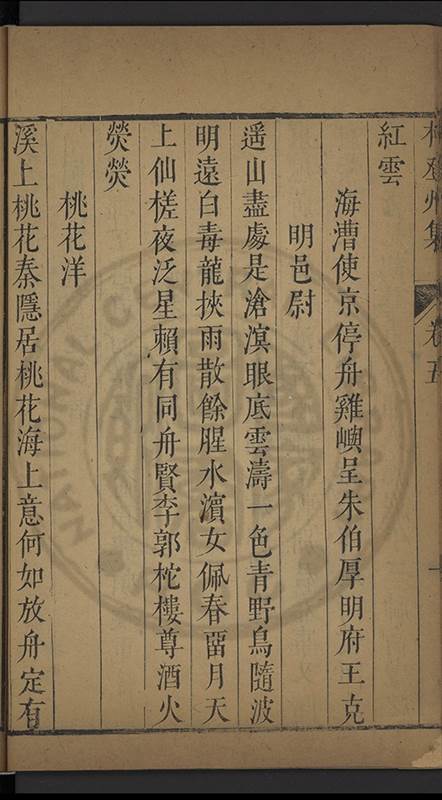 登州集
卷五
紅雲
海漕使京停舟雞嶼呈朱伯厚明府王克
明邑尉
遥山盡處是滄溟眼底雲濤一色青野鳥隨波
明遠白毒龍挾雨散餘腥水濵女佩春畱月天
上仙槎夜泛星賴有同舟賢李郭柁樓尊酒火
熒熒
桃花洋
溪上桃花秦隱居桃花海上意何如放舟定有